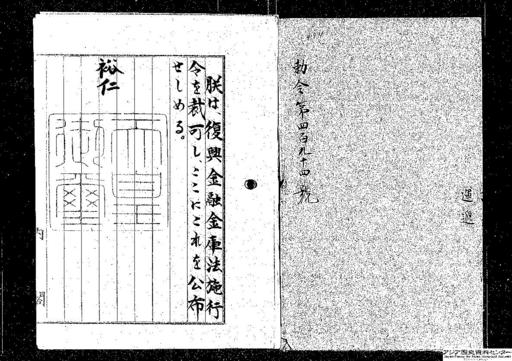 勅令第四百九十四號
朕は、復興金融金庫法施行
令を裁可し、ここにこれを公布
せしめる。
裕仁
天皇
御璽
内閣
アジア歴史資料センター